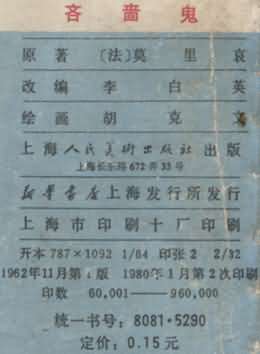 吝啬鬼
原著 〔法〕莫里哀
改编 李白英
绘画 胡克文
上海人民美术出版社出版
上海长乐路672弄33号
新华书店上海发行所发行
上海市印刷十厂印刷
开本 787×1092 1/64 印张 2 2/32
1962年11月第1版 1980年1月第2次印刷
印数 60,001——960,000
统一书号：8081·5290
定价：0.15元